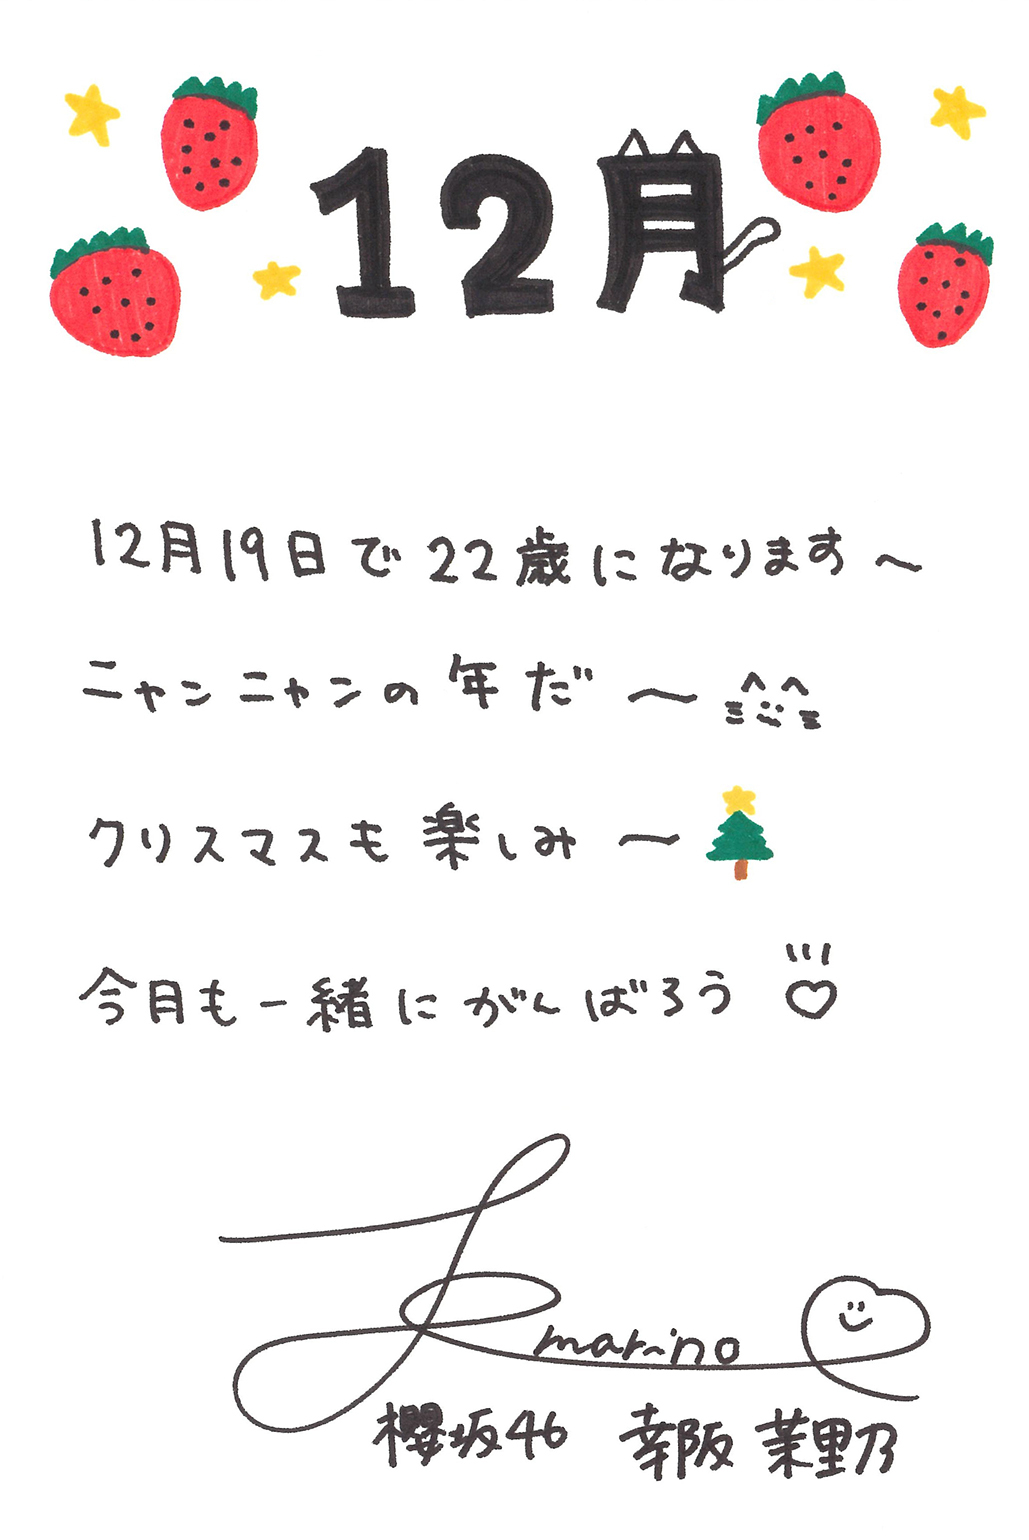 12月
12月19日で22歳になります〜
ニャンニャンの年だ〜
クリスマスも楽しみ〜
今月も一緒にがんばろう♡
marino
櫻坂46 幸阪茉里乃